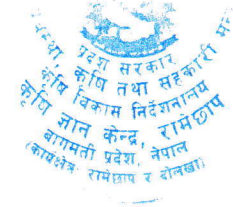 प्रदेश सरकार
कृषि तथा सहकारी
कृषि विकास निर्देशनालय
कृषि ज्ञान केन्द्र, रामेछाप
बागमती प्रदेश, नेपाल
(कार्यक्षेत्र: रामेछाप र दोलखा)